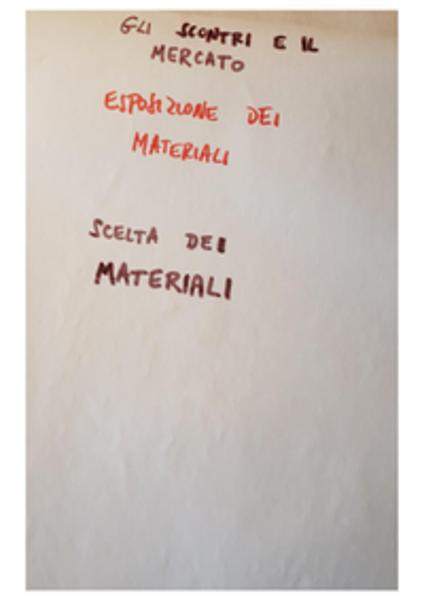 GLI SCONTRI E IL
MERCATO
ESPOSIZIONE DEI
MATERIALI
SCELTA DEI
MATERIALI